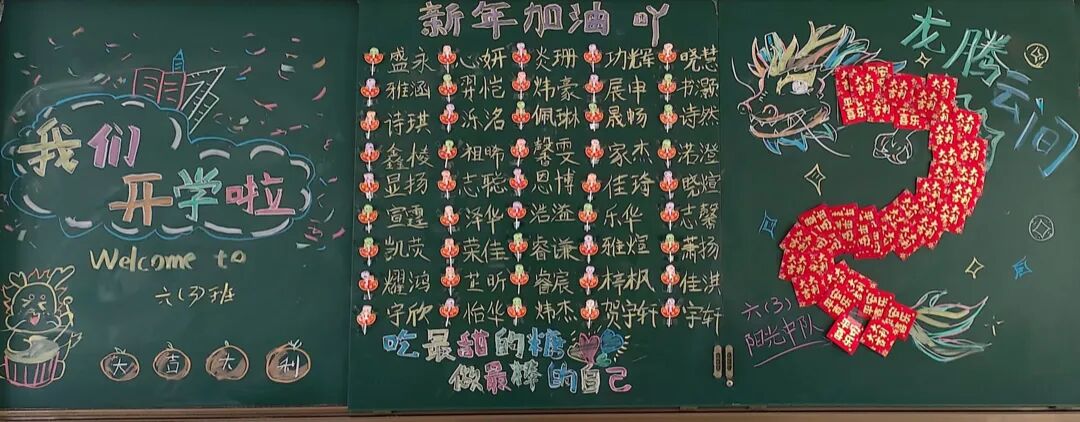 我们
开学啦
Welcome to
六(3)班
大吉大利
新年加油吖
盛永 心妍 炎珊 功辉 晓慧
雅涵 羿恺 炜豪 展申 书灏
诗琪 泺洺 佩琳 晟畅 诗然
鑫棱 祖晞 馨雯 家杰 若澄
显扬 志聪 恩博 佳琦 晓煊
宣霆 泽华 浩溢 乐华 志馨
凯荧 荣佳 睿谦 雅煊 萧扬
耀鸿 芷昕 睿宸 梓枫 佳淇
宇欣 怡华 炜杰 贺宇轩 宇轩
吃最甜的糖
做最棒的自己
龙腾云间
六(3)
阳光中队